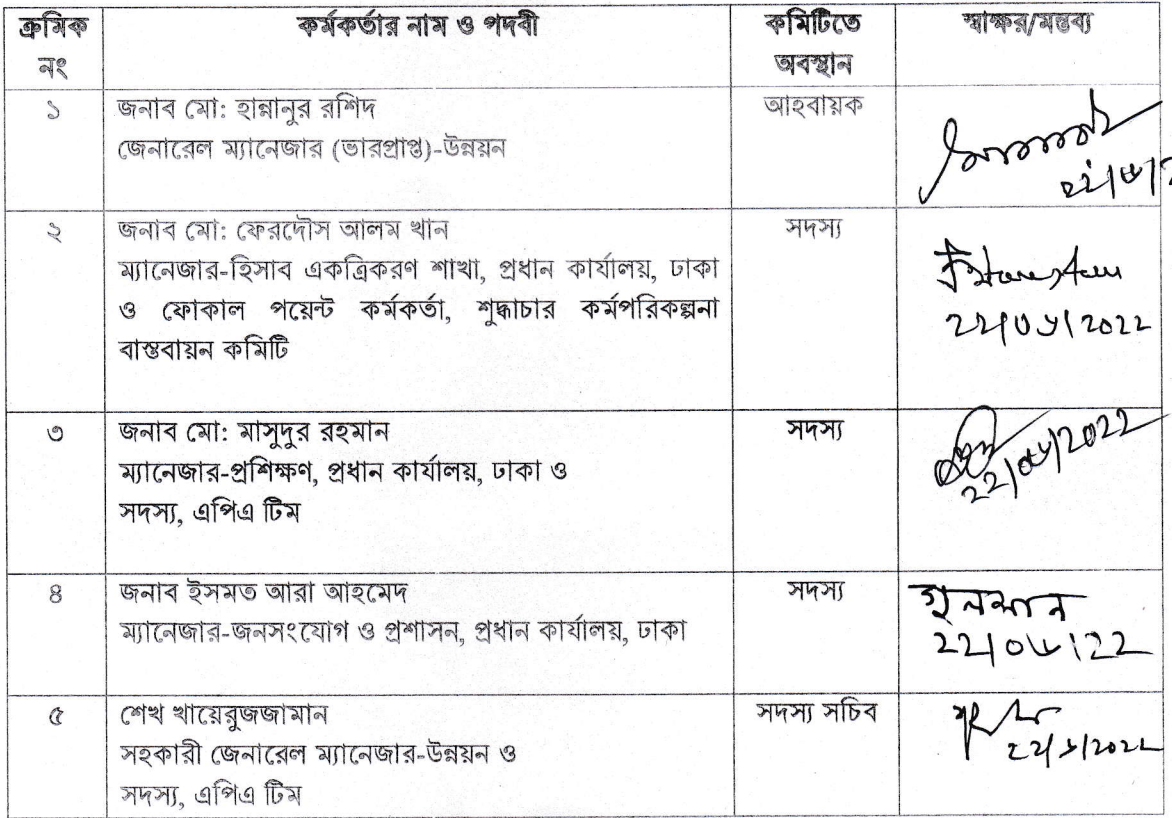 ক্রমিক নং
কর্মকর্তার নাম ও পদবী
কমিটিতে অবস্থান
স্বাক্ষর/মন্তব্য
১
জনাব মো: হান্নানুর রশিদ
জেনারেল ম্যানেজার (ভারপ্রাপ্ত)-উন্নয়ন
আহবায়ক
২
জনাব মো: ফেরদৌস আলম খান
ম্যানেজার-হিসাব একত্রিকরণ শাখা, প্রধান কার্যালয়, ঢাকা
ও ফোকাল পয়েন্ট কর্মকর্তা, শুদ্ধাচার কর্মপরিকল্পনা
বাস্তবায়ন কমিটি
সদস্য
৩
জনাব মো: মাসুদুর রহমান
ম্যানেজার-প্রশিক্ষণ, প্রধান কার্যালয়, ঢাকা ও
সদস্য, এপিএ টিম
সদস্য
৪
জনাব ইসমত আরা আহমেদ
ম্যানেজার-জনসংযোগ ও প্রশাসন, প্রধান কার্যালয়, ঢাকা
সদস্য
৫
শেখ খায়েরুজজামান
সহকারী জেনারেল ম্যানেজার-উন্নয়ন ও
সদস্য, এপিএ টিম
সদস্য সচিব